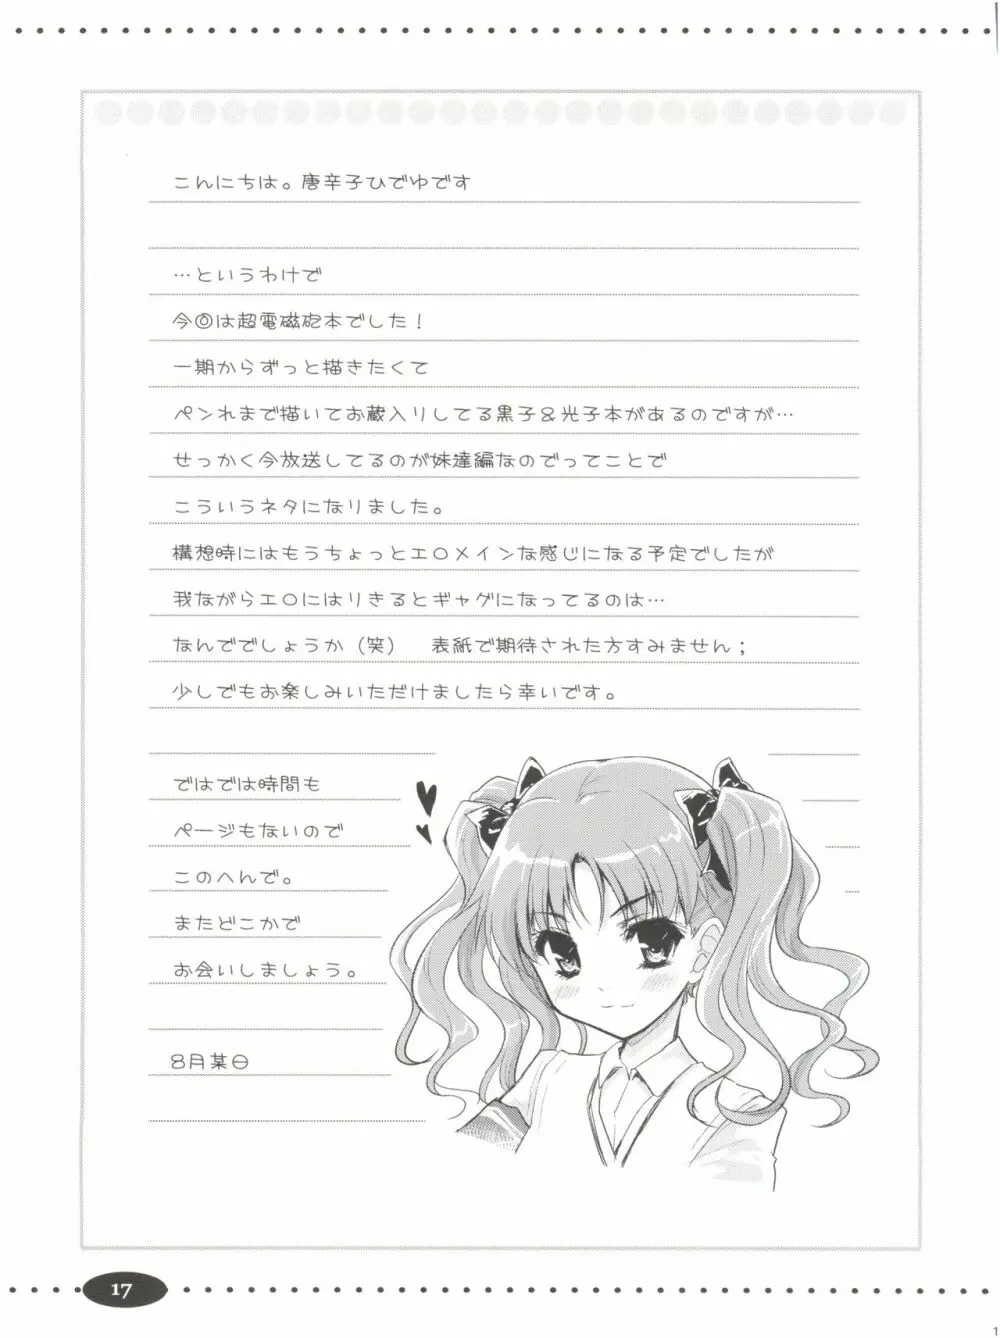 こんにちは。唐辛子ひでゆです
…というわけで
今◎は超電磁砲本でした！
一期からずっと描きたくて
ペン入れまで描いてお蔵入りしてる黒子＆光子本があるのですが…
せっかく今放送してるのが妹達編なのでってことで
こういうネタになりました。
構想時にはもうちょっとエ〇メインな感じになる予定でしたが
我ながらエ〇にはりきるとギャグになってるのは…
なんででしょうか（笑）　表紙で期待された方すみません；
少しでもお楽しみいただけましたら幸いです。
ではでは時間も
ページもないので
このへんで。
またどこかで
お会いしましょう。
8月某日
17
1